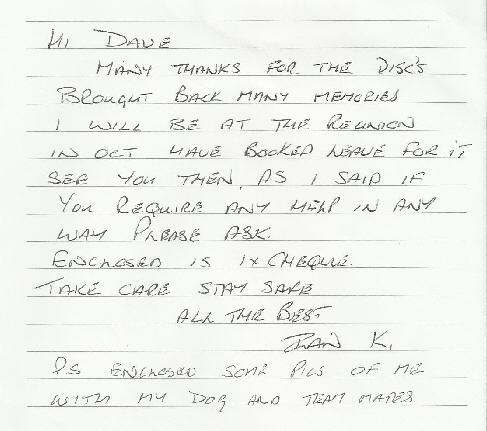 HI DAVE
MANY THANKS FOR THE DISC'S
BROUGHT BACK MANY MEMORIES
I WILL BE AT THE REUNION
IN OCT HAVE BOOKED LEAVE FOR IT
SEE YOU THEN, AS I SAID IF
YOU REQUIRE ANY HELP IN ANY
WAY PLEASE ASK.
ENCLOSED IS 1X CHEQUE.
TAKE CARE STAY SAFE
ALL THE BEST
K.
PS ENCLOSED SOME PICS OF ME
WITH MY DOG AND TEAM MATES